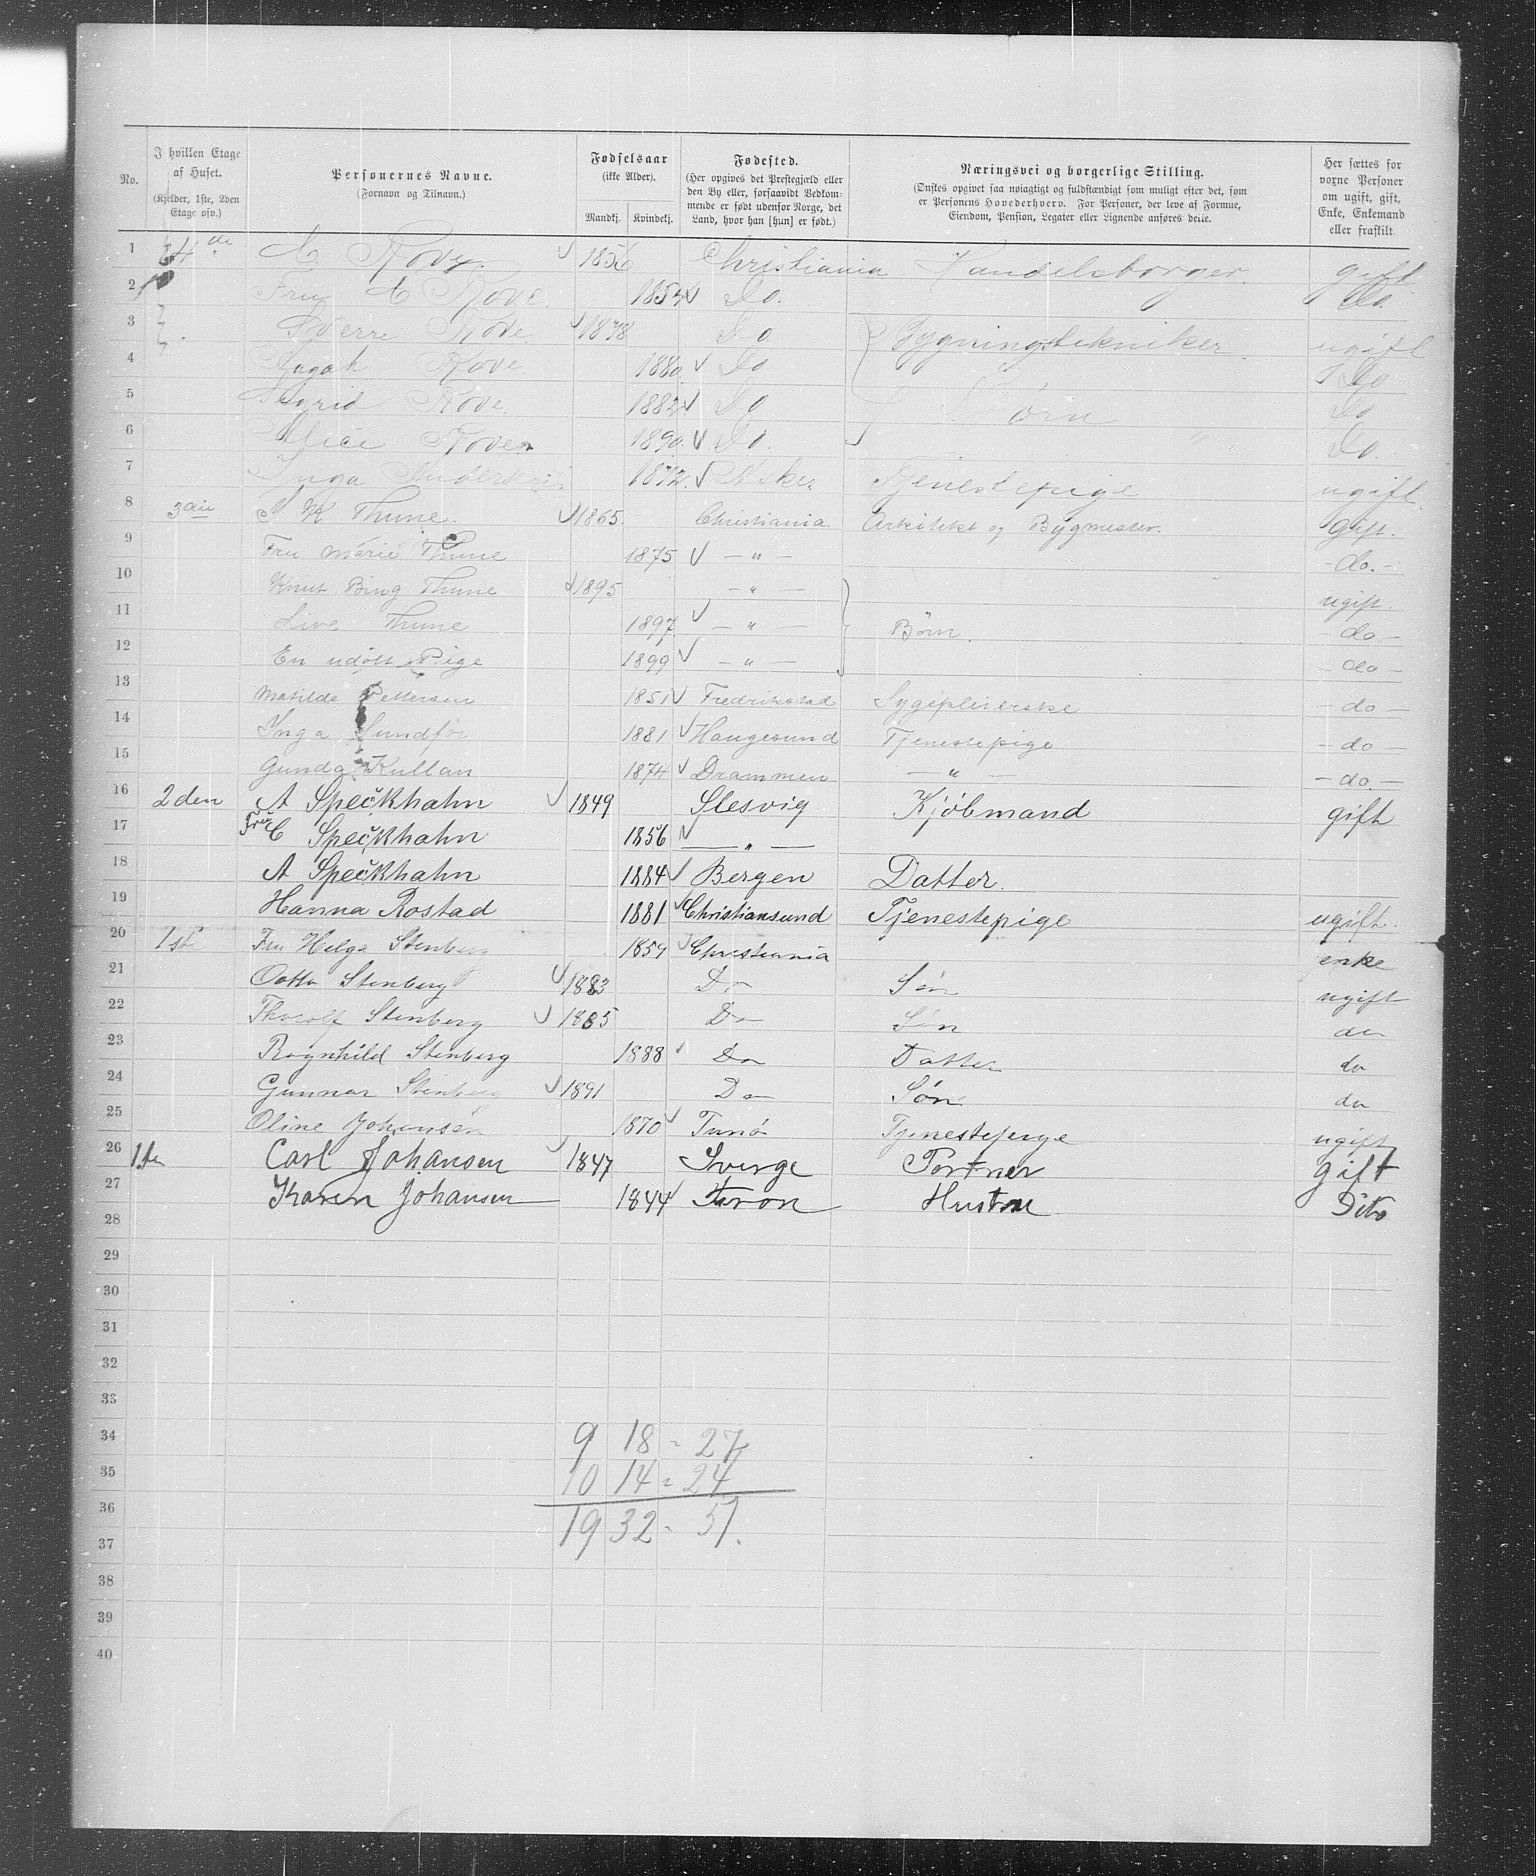 No. | I hvilken Etage af Huset. (Kjelder, 1ste, 2den Etage osv.) | Personernes Navne. (Fornavn og Tilnavn.) | Fødselsaar (ikke Alder). Mandkj. Kvindekj. | Fødested. (Her opgives det Prestegjæld eller den By eller, forsaavidt Vedkommende er født udenfor Norge, det Land, hvor han [hun] er født.) | Næringsvei og borgerlige Stilling. (Ønskes opgivet saa nøiagtigt og fuldstændigt som muligt efter det, som er Personens Hovederhverv. For Personer, der leve af Formue, Eiendom, Pension, Legater eller Lignende anføres dette. | Her sættes for voxne Personer om ugift, gift, Enke, Enkemand eller fraskilt.
1 4de Rover 1856 Christiania Handelsborger gift
2 Fru C Rove. 185 Do. Do.
3 Sverre Rove 1878 Do Bygningstekniker ugift
4 Rove 1880 Do Do
5 Sigrid Rove. 1882 Do Børn Do
6 Alice Roven 1890. Do. Do.
7 Inga Andersen 1872. Asker Tjenestepige ugift
8 3die K Thune. 1865. Christiania Arkitekt og Bygmester. Gift.
9 Fru Marie Thune 1875 — " — -do.-
10 Knut Bing Thune 1895 — " — ugift.
11 Live Thune 1897 — " — Børn. - do -
12 En udøbt Pige 1899 — " — - do -
13 Matilde Pettersen 1851 Fredrikstad Sygepleierske - do -
14 Inga Sundfør 1881 Haugesund Tjenestepige - do -
15 Gunda Kullan 1874 Drammen — " — - do.-
16 2den A Speckhahn 1849 Slesvig Kjøbmand gift
17 Fru C Speckhahn 1856 — " —
18 A Speckhahn 1884 Bergen Datter.
19 Hanna Rostad 1881 Christiansund Tjenestepige ugift.
20 1ste Fru Helga Stenberg 1859 Christiania enke
21 Otto Stenberg 1883 Do Søn ugift
22 Thorolf Stenberg 1885 Do Søn do
23 Ragnhild Stenberg 1888 Do Datter do
24 Gunnar Stenberg 1891 Do Søn do
25 Oline Johansen 1870 Tjenestepige ugift
26 1ste Carl Johansen 1847 Sverge Portner gift
27 Karen Johansen 1844 Hustru Dito
28
29
30
31
32
33
34 9 18 = 27
35 10 14 = 24
36 19 32 = 51.
37
38
39
40